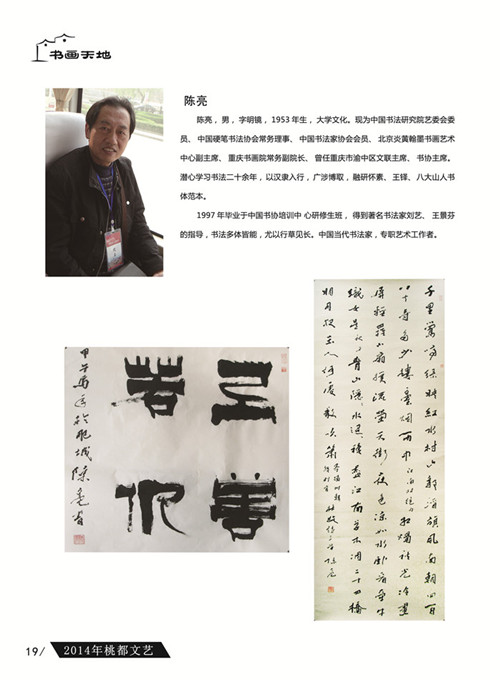 书画天地
陈亮
陈亮，男，字明镜，1953年生，大学文化。现为中国书法研究院艺委会委
员、中国硬笔书法协会常务理事、中国书法家协会会员、北京炎黄翰墨书画艺术
中心副主席、重庆书画院常务副院长、曾任重庆市渝中区文联主席、书协主席。
潜心学习书法二十余年，以汉隶入行，广涉博取，融研怀素、王铎、八大山人书
体范本。
1997年毕业于中国书协培训中 心研修生班，得到著名书法家刘艺、王景芬
的指导，书法多体皆能，尤以行草见长。中国当代书法家，专职艺术工作者。
千里鶯啼綠映紅水村山郭酒旗風南朝四百
八十寺多少樓臺煙雨中紅燭秋光冷畫
屏輕羅小扇撲流螢天街夜色涼如水卧看牽牛
織女星青山隱隱水迢迢秋盡江南草未凋二十四橋
明月夜玉人何處教吹簫
上善
若水
甲午於肥城陳亮書
19/ 2014年桃都文艺